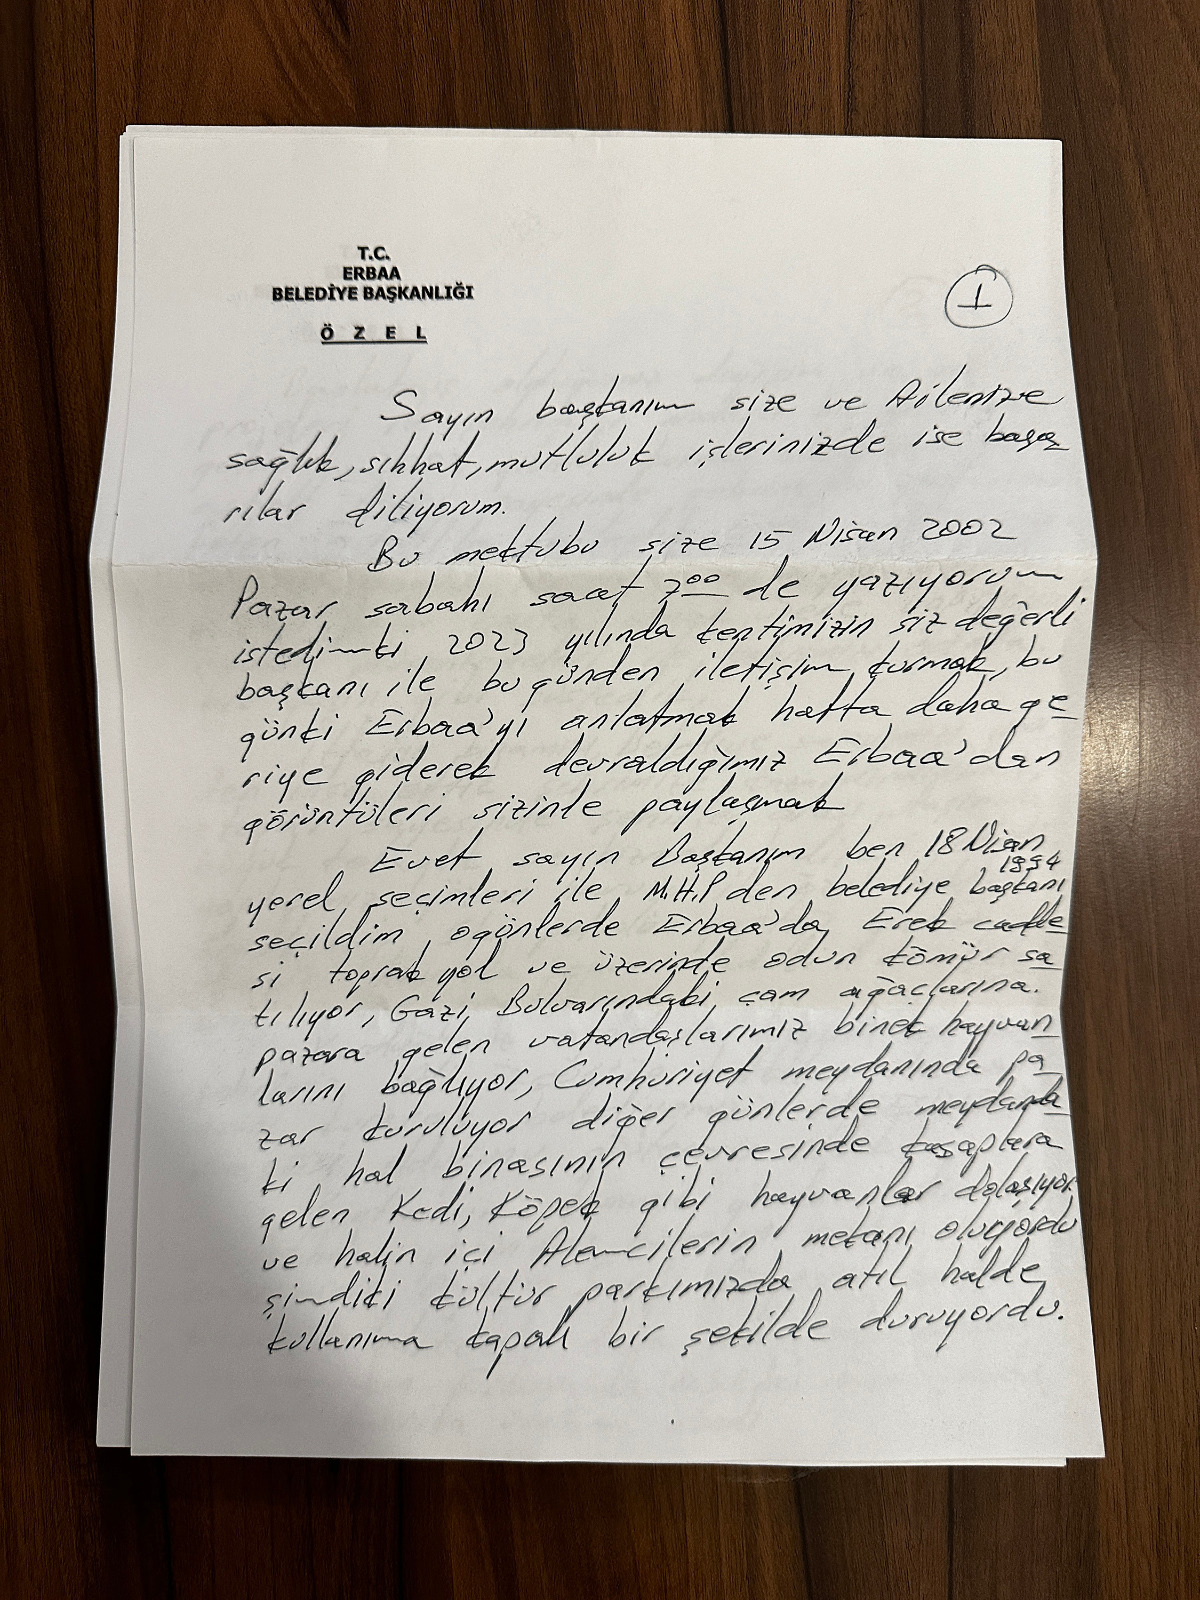 T.C.
ERBAA
BELEDİYE BAŞKANLIĞI
Ö Z E L
1
Sayın başkanım size ve Ailenize
sağlık, sıhhat, mutluluk işlerinizde ise başa
rılar diliyorum.
Bu mektubu size 15 Nisan 2002
Pazar sabahı saat 7⁰⁰ de yazıyorum
istedimki 2023 yılında kentimizin siz değerli
başkanı ile bugünden iletişim kurmak, bu
günki Erbaa'yı anlatmak hatta daha ge
riye giderek devraldığımız Erbaa'dan
görüntüleri sizinle paylaşmak
Evet sayın Başkanım ben 18 Nisan
1994
yerel seçimleri ile M.H.P den belediye başkanı
seçildim ogünlerde Erbaa'da Erek cadde
si toprak yol ve üzerinde odun kömür sa
tılıyor, Gazi Bulvarındaki çam ağaçlarına
pazara gelen vatandaşlarımız binek hayvan
larını bağlıyor, Cumhuriyet meydanında pa
zar kuruluyor diğer günlerde meydanda
ki hal binasının çevresinde kasaplara
gelen Kedi, Köpek gibi hayvanlar dolaşıyor
ve halin içi Alemcilerin mekanı oluyordu
şimdiki kültür parkımızda atıl halde
kullanıma kapalı bir şekilde duruyordu.